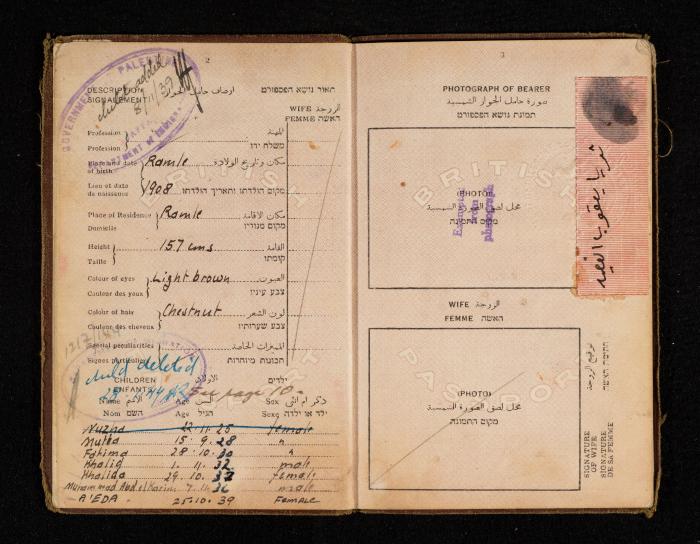 2
GOVERNMENT PALE
child added
8/1/39
DEPARTMENT OF
DESCRIPTION اوصاف حامل الجواز תאור נושא הפספורט
SIGNALEMENT
WIFE الزوجة
FEMME האשה
Profession المهنة
Profession משלח ידו
Place and date of birth Ramle مكان وتاريخ الولادة
Lieu et date de naissance 1908 מקום הולדתו ותאריך הולדתו
Place of Residence Ramle مكان الاقامة
Domicile מקום מגוריו
Height 157 cms القامة
Taille קומתו
Colour of eyes Light brown العيون
Couleur des yeux צבע עיניו
Colour of hair Chestnut لون الشعر
Couleur des cheveux צבע שערותיו
Special peculiarities المميزات الخاصة
Signes particuliers תכונות מיוחדות
child deleted
CHILDREN الاولاد ילדים
ENFANTS See page 10.
Name الاسم Age السن Sex ذكر ام انثى
Nom השם Age הגיל Sexe ילד או ילדה
Nuzha 12.11.25 female
15.9.28 "
Fatima 28.10.30 "
Khalid 1.11.32 male
Khalida 29.10. female
Muhammad Abd el Karim 7.11.36 male
A'EDA 25.10.39 FEMALE
BRITISH
PASSPORT
3
PHOTOGRAPH OF BEARER
صورة حامل الجواز الشمسية
תמונת נושא הפספורט
BRITISH
(PHOTO)
محل لصق الصورة الشمسية
מקום התמונה
Exemption from photograph
ثريا يعقوب
WIFE الزوجة
FEMME האשה
PASSPORT
(PHOTO)
محل لصق الصورة الشمسية
מקום התמונה
SIGNATURE OF WIFE توقيع الزوجة
SIGNATURE DE SA FEMME חתימת האשה